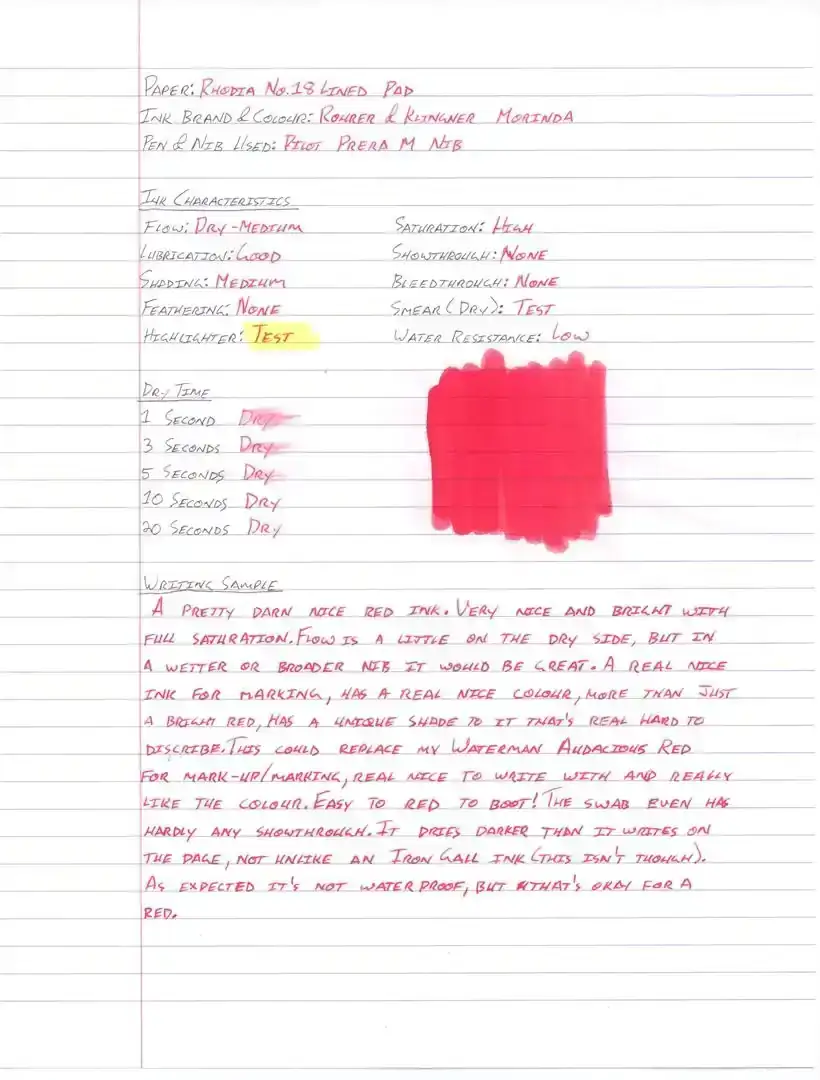 Paper: Rhodia No.18 Lined Pad
Ink Brand & Colour: Rohrer & Klingner Morinda
Pen & Nib Used: Pilot Prera M Nib
Ink Characteristics
Flow: Dry-Medium Saturation: High
Lubrication: Good Showthrough: None
Shading: Medium Bleedthrough: None
Feathering: None Smear (Dry): Test
Highlighter: Test Water Resistance: Low
Dry Time
1 Second Dry
3 Seconds Dry
5 Seconds Dry
10 Seconds Dry
20 Seconds Dry
Writing Sample
A pretty darn nice red ink. Very nice and bright with
full saturation. Flow is a little on the dry side, but in
a wetter or broader nib it would be great. A real nice
ink for marking, has a real nice colour, more than just
a bright red, has a unique shade to it that's real hard to
discribe. This could replace my Waterman Audacious Red
for mark-up/marking, real nice to write with and really
like the colour. Easy to red to boot! The swab even has
hardly any showthrough. It dries darker than it writes on
the page, not unlike an Iron Gall ink (this isn't though).
As expected it's not water proof, but that's okay for a
red.